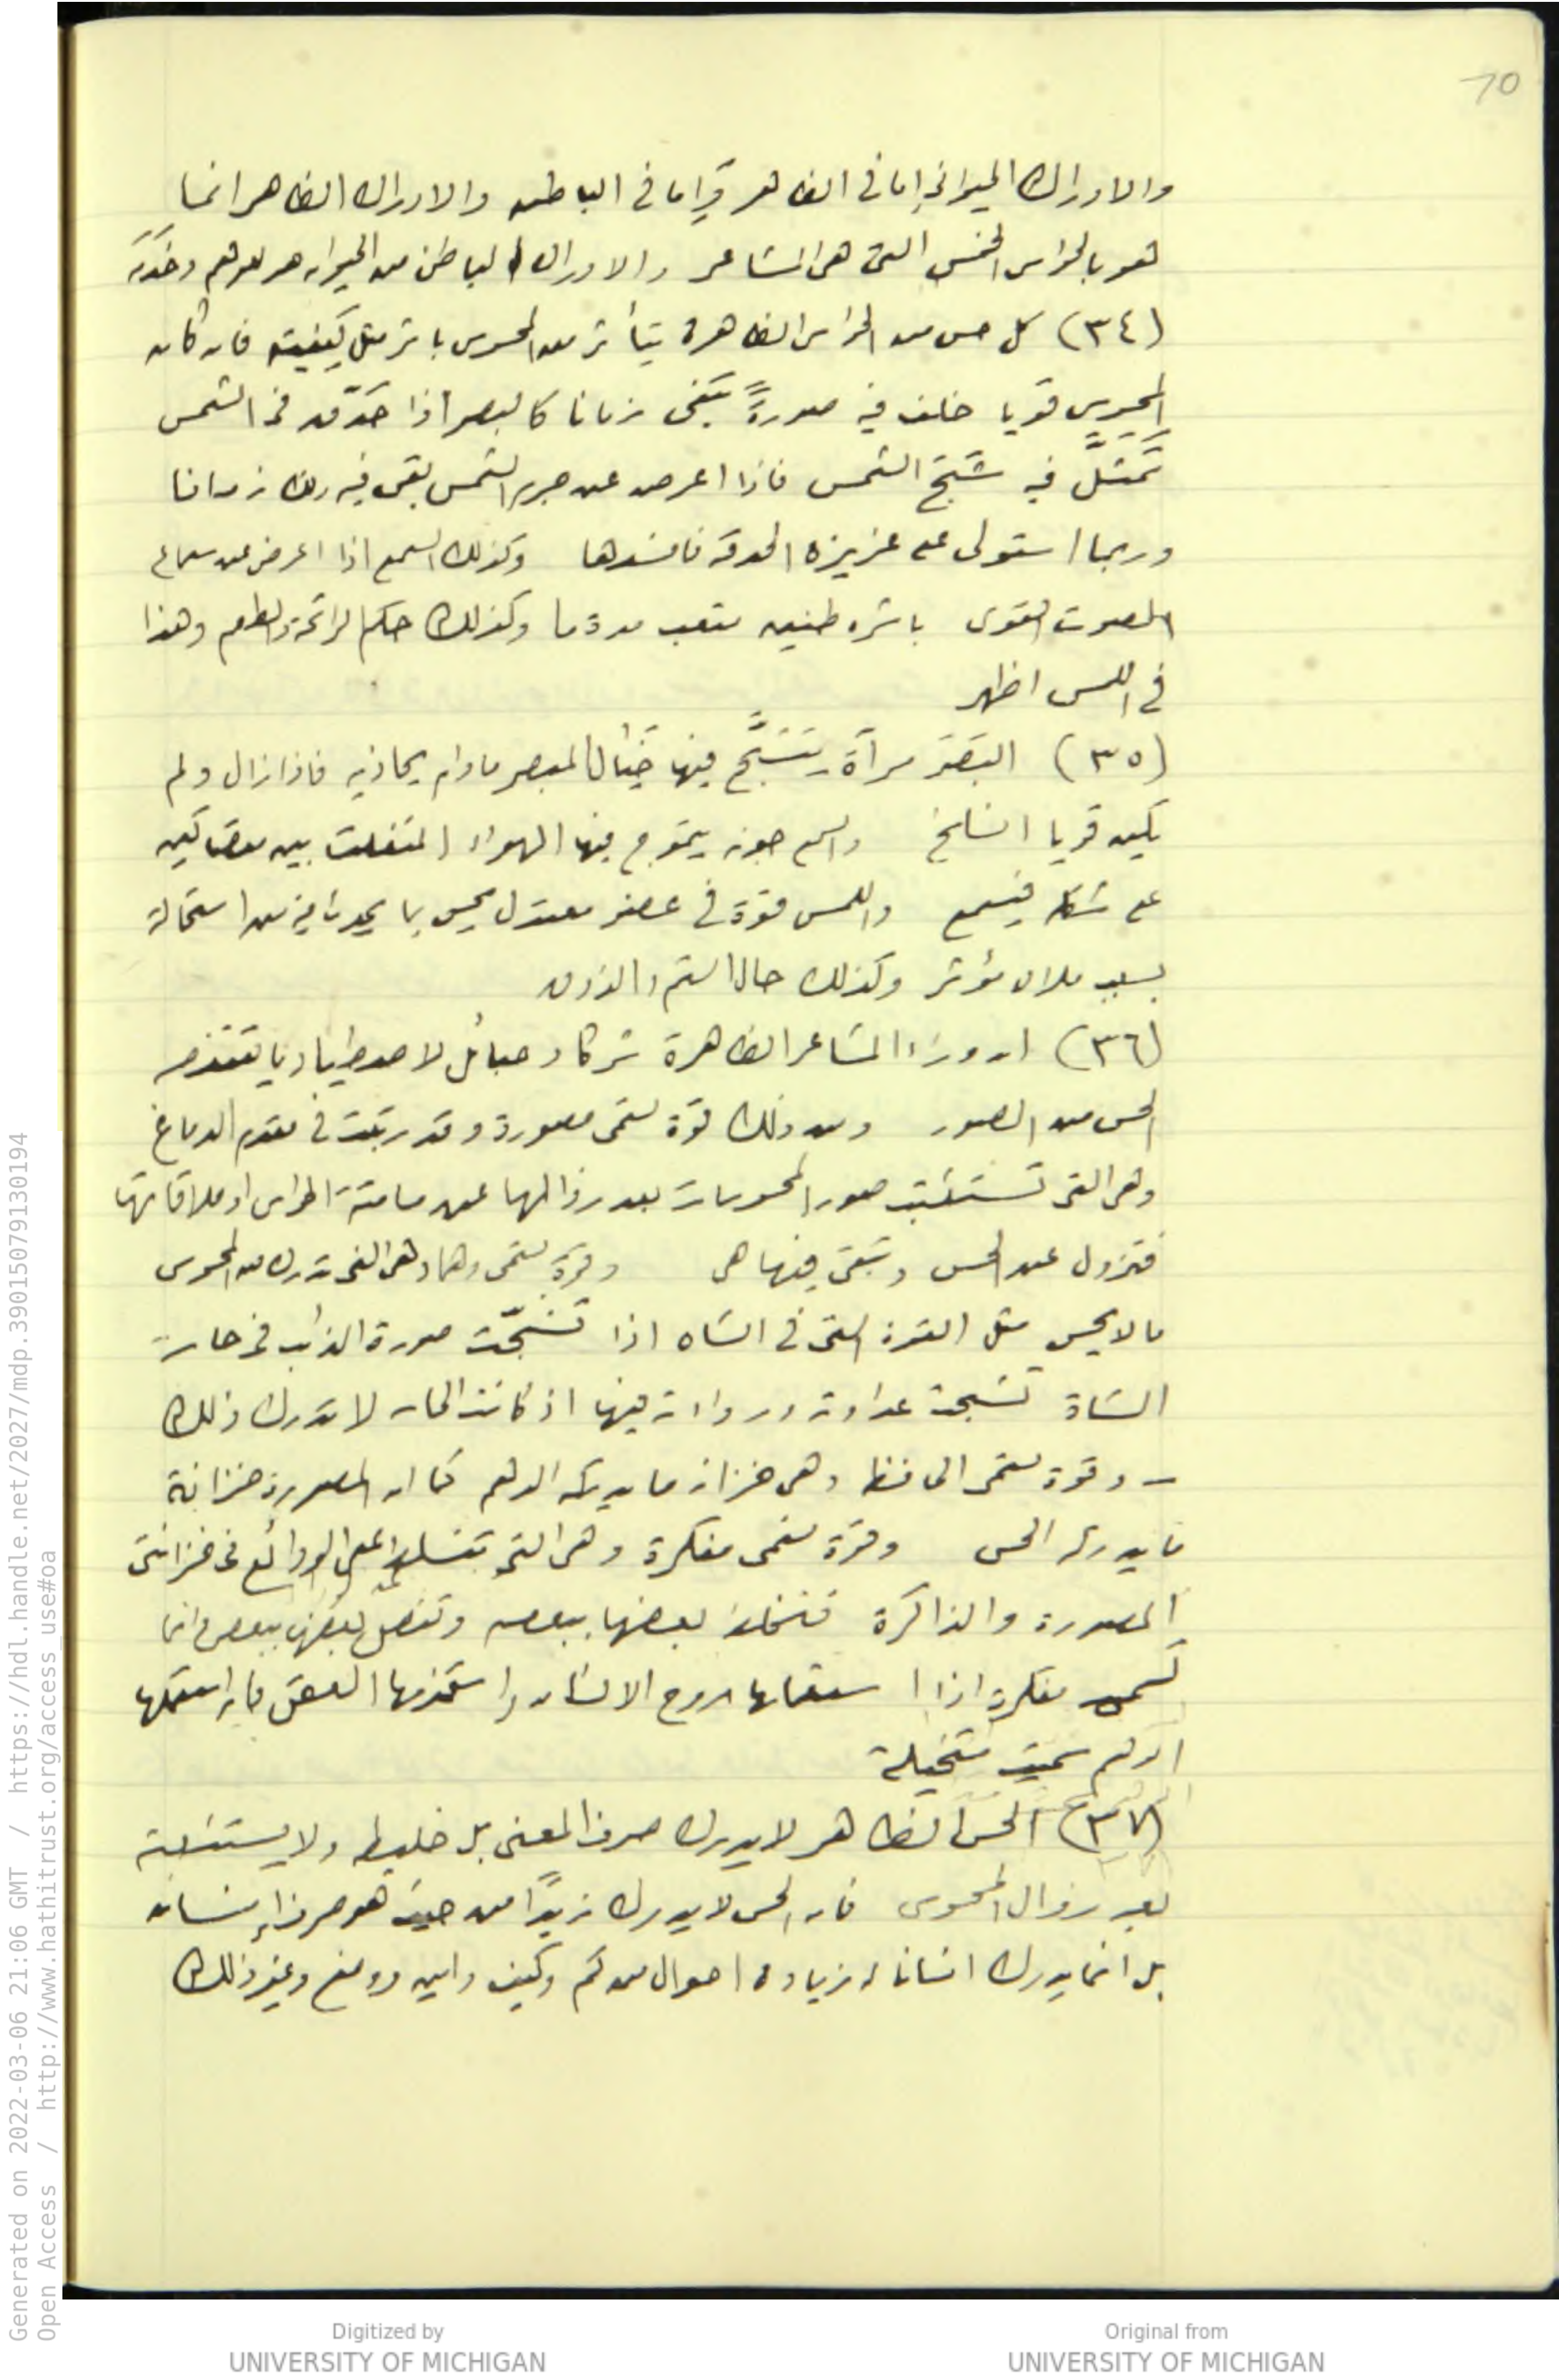 70
والادراك الحيوانى اما فى الظاهر وإما فى الباطن والادراك الظاهر انما
هو بالحواس الخمس التى هى المشاعر والادراك الباطن من الحيوان هو للوهم وخَوَلَه
(٣٤) كل حس من الحواس الظاهرة يتأثر من المحسوس باثر مثل كيفيته فان كان
المحسوس قويا خلف فيه صورةً تبقى زمانا كالبصر اذا حَدّق فى الشمس
تَمَثَّلَ فيه شَبَحُ الشمس فاذا اعرض عن جرم الشمس بقى فيه ذلك زمانا
وربما استولى على غريزة الحدقة فافسدها وكذلك السمع اذا اعرض عن سماع
الصوت القوى باشره طنين متعب مدة ما وكذلك حكم الرائحة والطعم وهذا
فى اللمس اظهر
(٣٥) البَصَر مرآة يَتَشَبَّح فيها خَيَال المبصر مادام يحاذيه فاذا زال ولم
يكن قويا انسلخ والسمع جوبة يتموج فيها الهواء المنفلت بين مصاكين
على شكله فيسمع واللمس قوة فى عضو معتدل يحس بما يحدث فيه من استحالة
بسبب ملاق مؤثر وكذلك حال الشم والذوق
(٣٦) ان وراء المشاعر الظاهرة شركا وحبائل لاصطياد ما يقتنصه
الحس من الصور ومن ذلك قوة تسمى مصورة وقد رتبت فى مقدم الدماغ
وهى التى تَستَثبت صور المحسوسات بعد زوالها عن مسامتة الحواس او ملاقاتها
فتزول عن الحس وتبقى فيها هى وقوة تسمى وهما وهى التى تدرك من المحسوس
ما لا يحس مثل القوة التى فى الشاه اذا تَشَبَّحَت صورة الذئب فى حاسة
الشاة تشبحت عداوته ورداءته فيها اذ كانت الحاسه لا تدرك ذلك
– وقوة تسمى الحافظة وهى خزانة ما يدركه الوهم كما ان المصورة خزانة
ما يدركه الحس وقوة تسمى مفكرة وهى التى تتسلط على الودائع فى خزانتى
المصورة والذاكرة فتخلط بعضها ببعض وتفصل بعضها ببعض وانما
تسمى مفكرة اذا استعملها روح الانسان واستخدمها العقل فان استعملها
الوهم سميت متخيلة
(٣٧) الحس الظاهر لا يدرك صرف المعنى بل خليطه ولا يستثبته
بعد زوال المحسوس فان الحس لا يدرك زيدًا من حيث هو صرف إنسان
بل انما يدرك انسانا له زيادة احوال من كم وكيف واين ووضع وغير ذلك
Generated on 2022-03-06 21:06 GMT / https://hdl.handle.net/2027/mdp.39015079130194
Open Access / http://www.hathitrust.org/access_use#oa
Digitized by
UNIVERSITY OF MICHIGAN
Original from
UNIVERSITY OF MICHIGAN